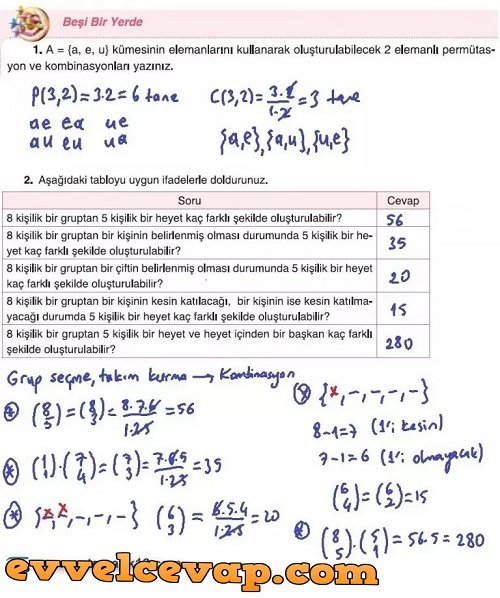 Beşi Bir Yerde
1. A = {a, e, u} kümesinin elemanlarını kullanarak oluşturulabilecek 2 elemanlı permütas-
yon ve kombinasyonları yazınız.
P(3,2)=3.2=6 tane C(3,2)=3.2/1.2=3 tane
ae ea ue {a,e},{a,u},{u,e}
au eu ua
2. Aşağıdaki tabloyu uygun ifadelerle doldurunuz.
Soru Cevap
8 kişilik bir gruptan 5 kişilik bir heyet kaç farklı şekilde oluşturulabilir? 56
8 kişilik bir gruptan bir kişinin belirlenmiş olması durumunda 5 kişilik bir he-
yet kaç farklı şekilde oluşturulabilir? 35
8 kişilik bir gruptan bir çiftin belirlenmiş olması durumunda 5 kişilik bir heyet
kaç farklı şekilde oluşturulabilir? 20
8 kişilik bir gruptan bir kişinin kesin katılacağı, bir kişinin ise kesin katılma-
yacağı durumda 5 kişilik bir heyet kaç farklı şekilde oluşturulabilir? 15
8 kişilik bir gruptan 5 kişilik bir heyet ve heyet içinden bir başkan kaç farklı
şekilde oluşturulabilir? 280
Grup seçme, takım kurma → Kombinasyon
(8/5)=(8/3)=8.7.6/1.2.3=56
(1/1).(7/4)=(7/3)=7.6.5/1.2.3=35
{x,x,-,-,-} (6/3)=6.5.4/1.2.3=20
{x,-,-,-,-}
8-1=7 (1'i kesin)
7-1=6 (1'i olmayacak)
(6/4)=(6/2)=15
(8/5).(5/1)=56.5=280
evvelcevap.com